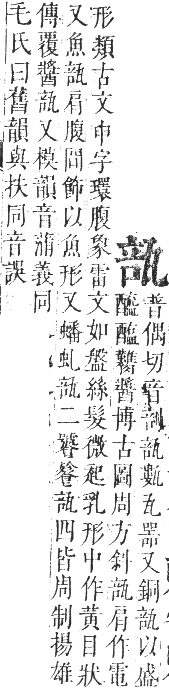 瓿
普偶切音剖瓿甊瓦器又銅瓿以盛
醯醢醬博古圖周方斜瓿肩作電
形類古文申字環腹象雷文如盤絲髮微起乳形中作黃目狀
又魚瓿肩腹間飾以魚形又蟠虬瓿二饕餮瓿四皆周制揚雄
傳覆醬瓿又模韻音蒲義同
毛氏曰舊韻與扶同音誤